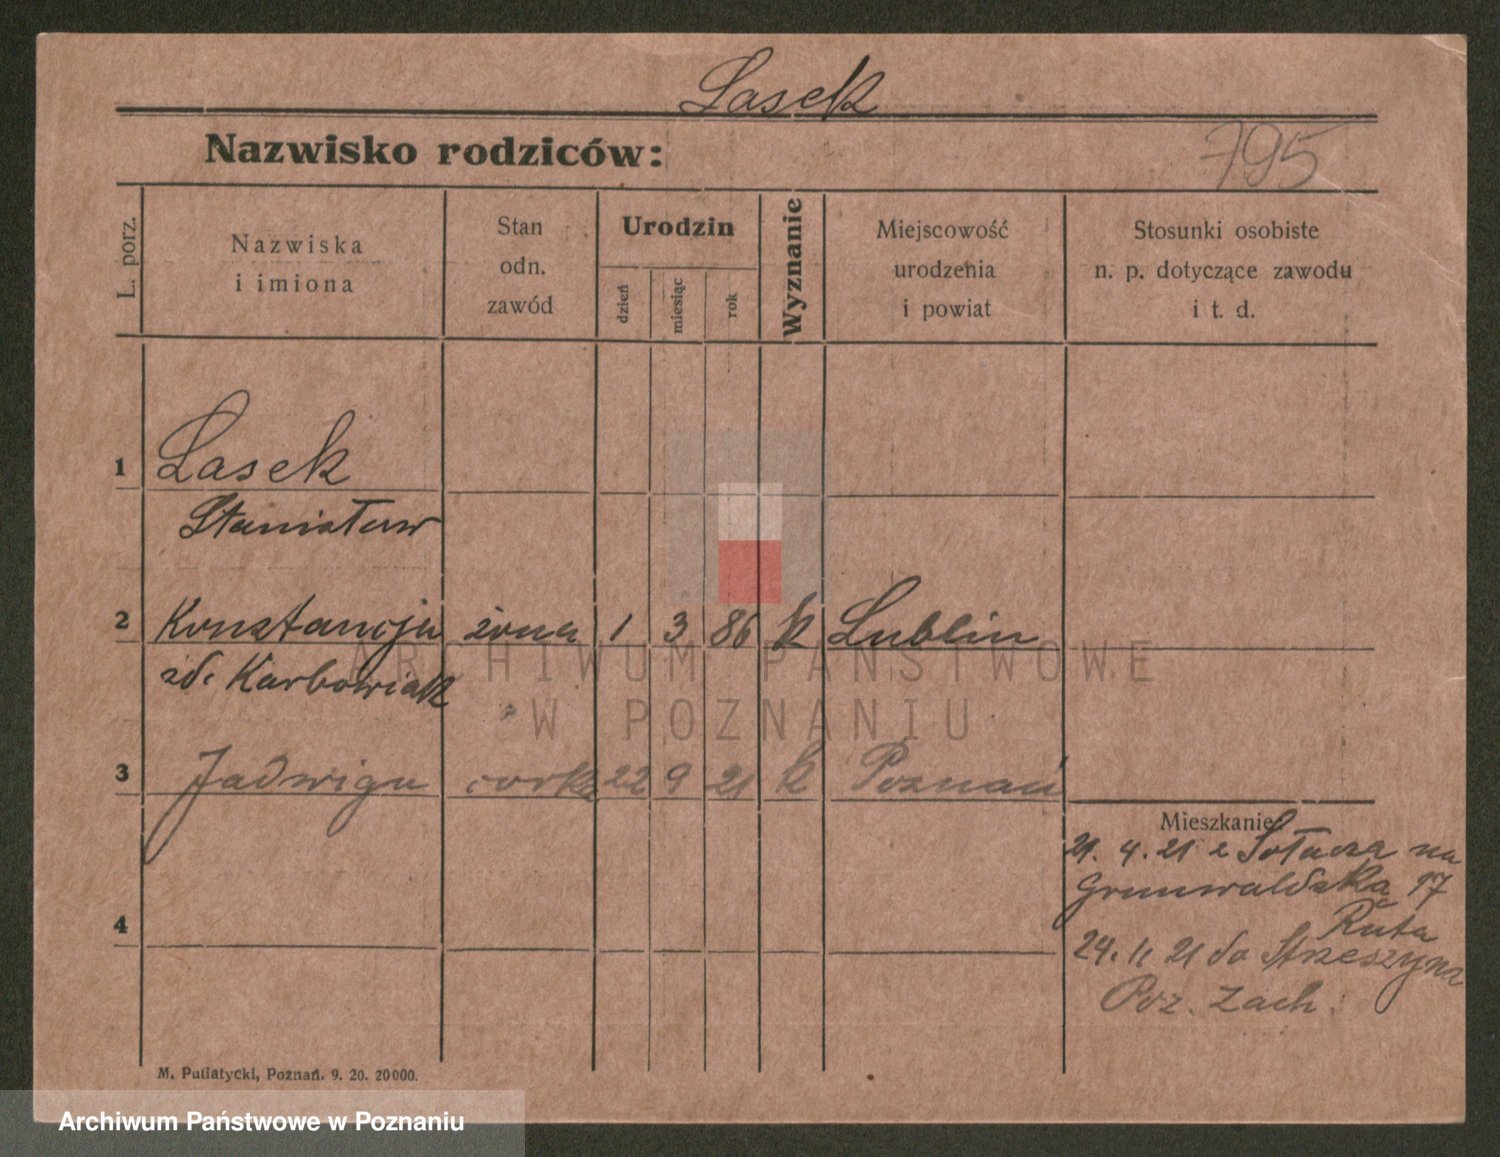 Lasek
Nazwisko rodziców:
795
L. porz.
Nazwiska
i imiona
Stan
odn.
zawód
Urodzin
dzień
miesiąc
rok
Wyznanie
Miejscowość
urodzenia
i powiat
Stosunki osobiste
n. p. dotyczące zawodu
i t. d.
1 Lasek
Stanisław
2 Konstancja żona 1 3 86 k Lublin
zd. Karbowiak
3 Jadwiga corka 22 9 21 k Poznań
4
Mieszkanie:
21. 4. 21 z Sołacza na
Grunwaldzką 17
Ruta
24. 11 21 do Strzeszyna
Poz. Zach.
M. Putiatycki, Poznań. 9. 20. 20000.
ARCHIWUM PAŃSTWOWE
W POZNANIU
Archiwum Państwowe w Poznaniu